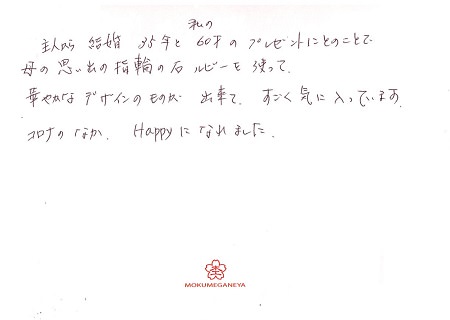 主人から 結婚 35年と 私の 60才の プレゼントにとのことで
母の 思い出の 指輪の石 ルビーを 使って、
華やかな デザインのものが 出来て、 すごく 気に 入っています。
コロナの なか、 Happyに なれました。
MOKUMEGANEYA